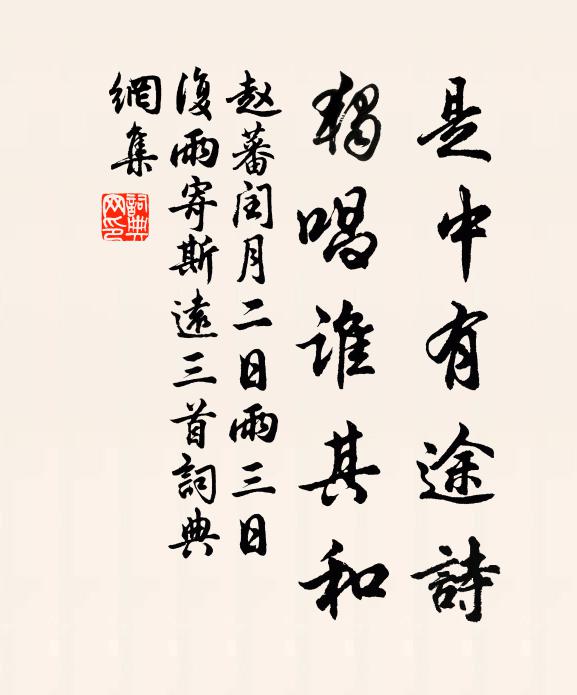 是中有途詩
獨唱谁其和
赵蕃闰月二日雨三日
復雨寄斯遠三首詞典
網集
詞典
网